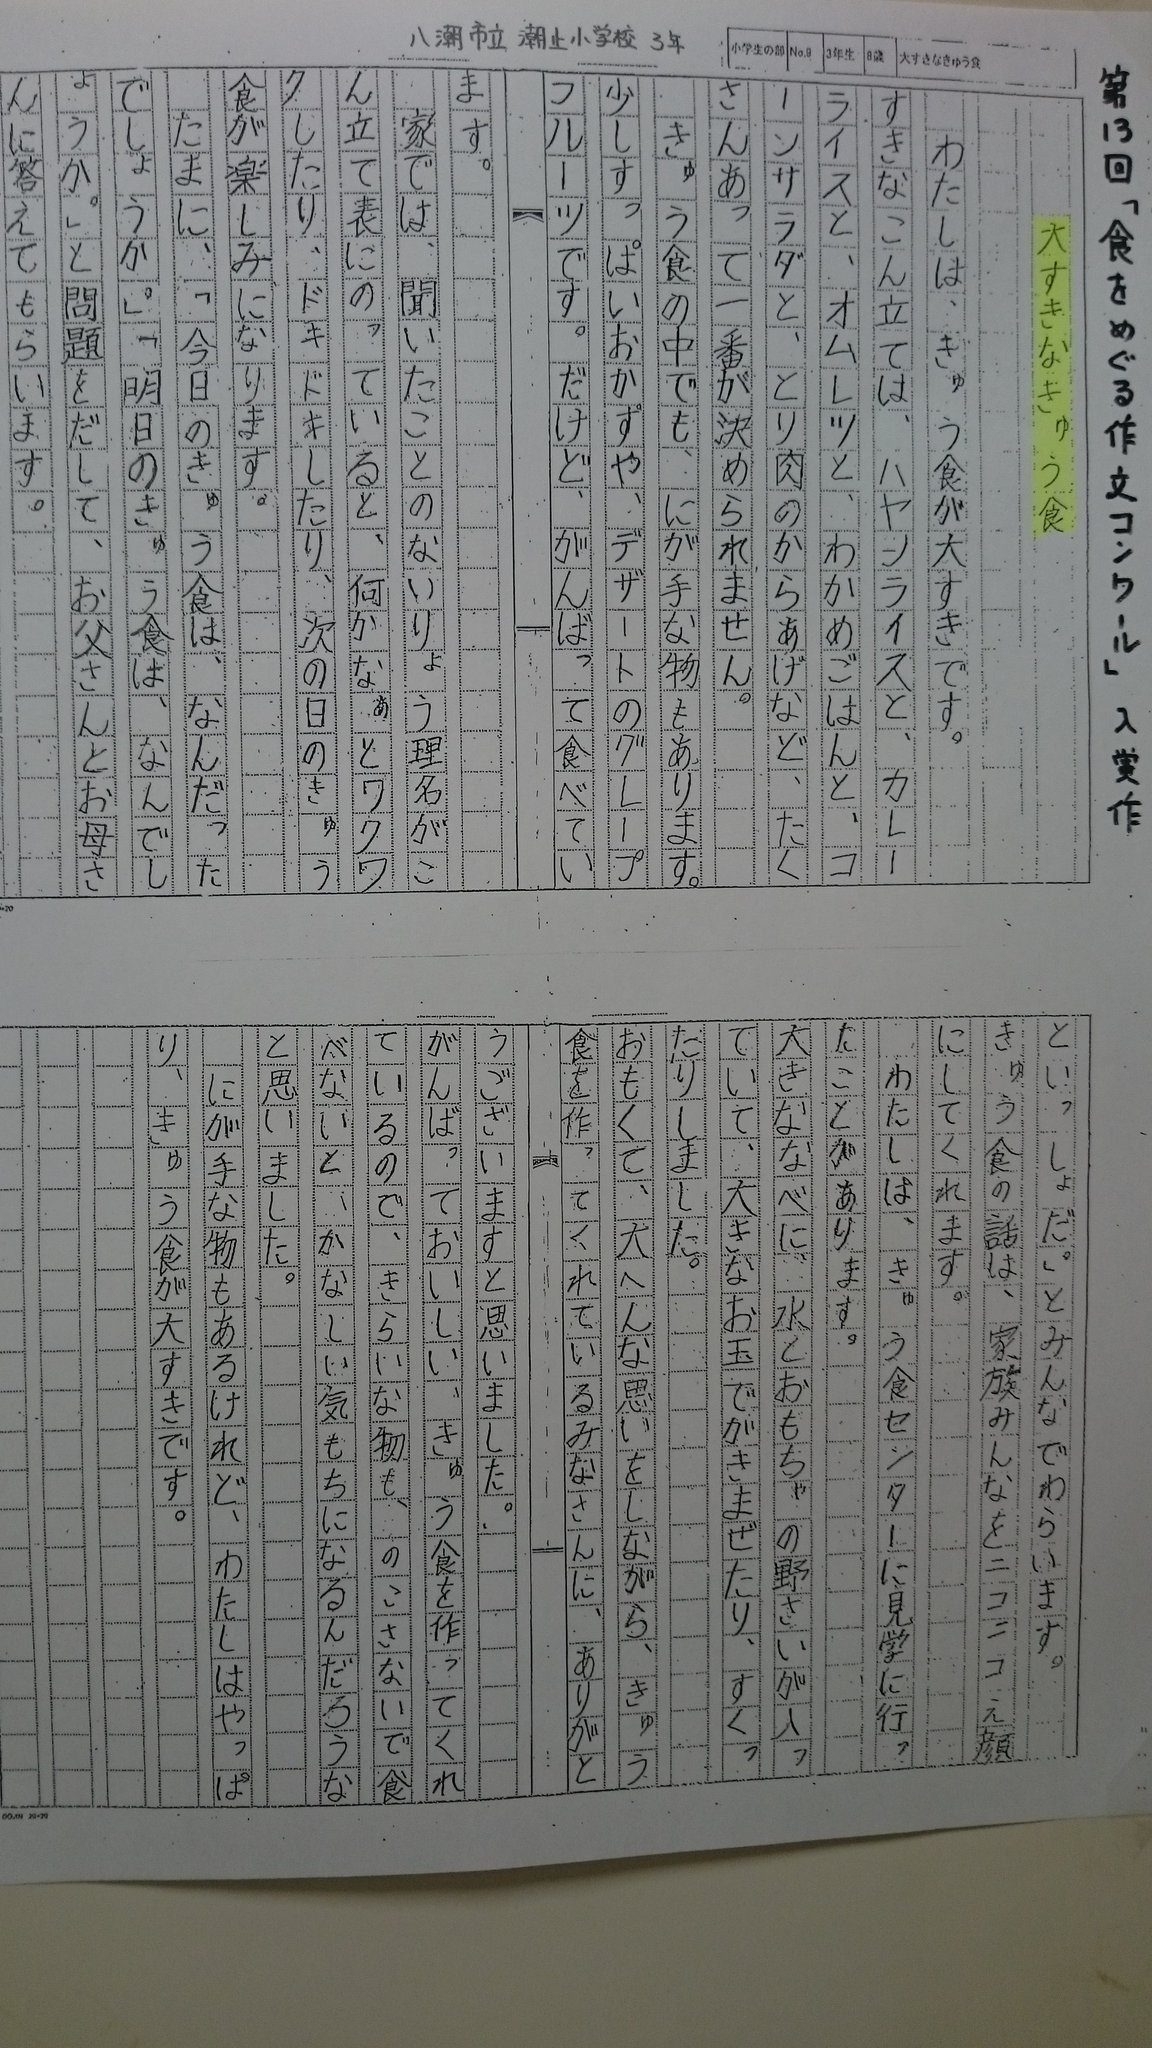 第13回「食をめぐる作文コンクール」入賞作
八潮市立 潮止小学校 3年
小学生の部 No.9 3年生 8歳 大すきなきゅう食
大すきなきゅう食
わたしは、きゅう食が大すきです。
すきなこん立ては、ハヤシライスと、カレー
ライスと、オムレツと、わかめごはんと、コ
ーンサラダと、とり肉のからあげなど、たく
さんあって一番が決められません。
きゅう食の中でも、にが手な物もあります。
少しすっぱいおかずや、デザートのグレープ
フルーツです。だけど、がんばって食べてい
ます。
家では、聞いたことのないりょう理名がこ
ん立て表にのっていると、何かなぁとワクワ
クしたり、ドキドキしたり、次の日のきゅう
食が楽しみになります。
たまに、「今日のきゅう食は、なんだった
でしょうか。」「明日のきゅう食は、なんでし
ょうか。」と問題をだして、お父さんとお母さ
んに答えてもらいます。
といっしょだ。」とみんなでわらいます。
きゅう食の話は、家族みんなをニコニコえ顔
にしてくれます。
わたしは、きゅう食センターに見学に行っ
たことがあります。
大きななべに、水とおもちゃの野さいが入っ
ていて、大きなお玉でがきまぜたり、すくっ
たりしました。
おもくて、大へんな思いをしながら、きゅう
食を作ってくれているみなさんに、ありがと
うございますと思いました。
がんばっておいしい、きゅう食を作ってくれ
ているので、きらいな物も、のこさないで食
べないと、かなしい気もちになるんだろうな
と思いました。
にが手な物もあるけれど、わたしはやっぱ
り、きゅう食が大すきです。